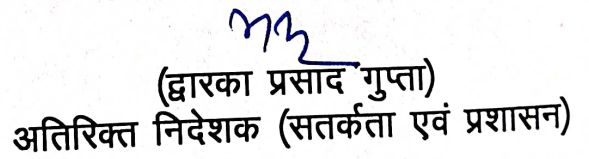 (द्वारका प्रसाद गुप्ता)
अतिरिक्त निदेशक (सतर्कता एवं प्रशासन)